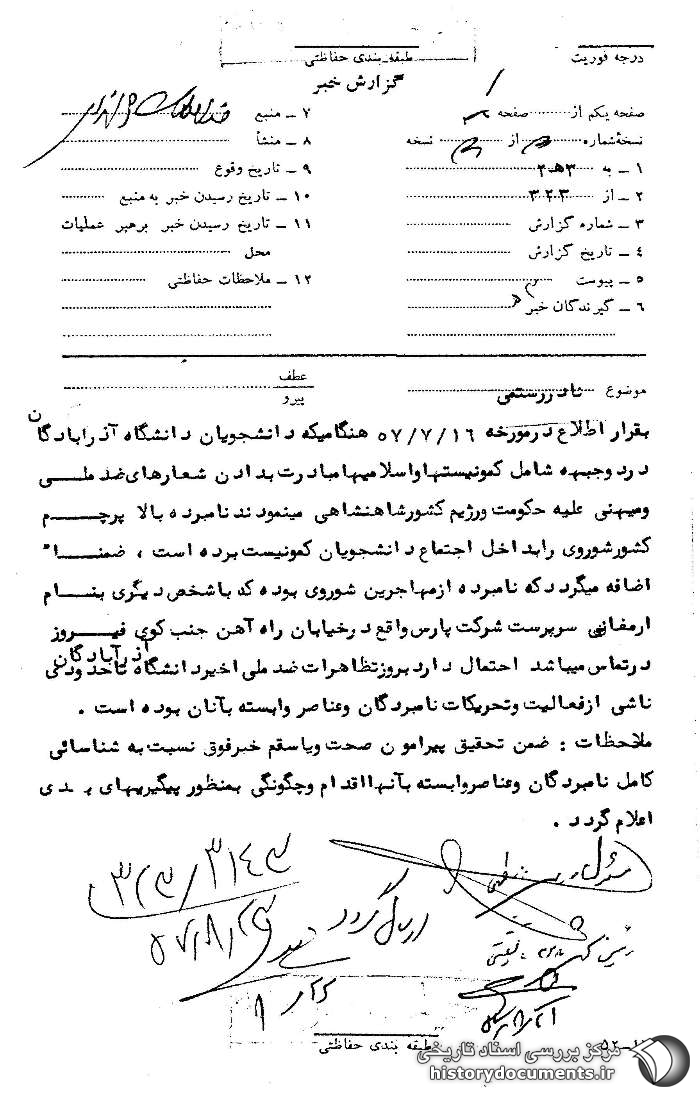 طبقه بندی حفاظتی
درجه فوریت
گزارش خبر
صفحه یکم از صفحه
نسخه شماره از نسخه
۱ ـ به ۳هـ۲
۲ ـ از ۳۲۳
۳ ـ شماره گزارش
٤ ـ تاریخ گزارش
٥ ـ پیوست
٦ ـ گیرندگان خبر
۷ ـ منبع
۸ ـ منشأ
۹ ـ تاریخ وقوع
۱۰ ـ تاریخ رسیدن خبر به منبع
۱۱ ـ تاریخ رسیدن خبر برهبر عملیات
محل
۱۲ ـ ملاحظات حفاظتی
موضوع نادررستمی
عطف
پیرو
بقرار اطلاع درمورخه ۵۷/۷/۱۶ هنگامیکه دانشجویان دانشگاه آذرابادگان
دردوجبهه شامل کمونیستهاواسلامیهامبادرت بدادن شعارهای ضد ملی
ومیهنی علیه حکومت ورژیم کشورشاهنشاهی مینمودند نامبرده بالا پرچم
کشورشوروی رابداخل اجتماع دانشجویان کمونیست برده است ، ضمنا"
اضافه میگرددکه نامبرده ازمهاجرین شوروی بوده که باشخص دیگری بنام
ارمغانی سرپرست شرکت پارس واقع درخیابان راه آهن جنب کوی فیروز
درتماس میباشد احتمال داردبروزتظاهرات ضد ملی اخیردانشگاه آذرآبادگان تاحدودی
ناشی ازفعالیت وتحریکات نامبردگان وعناصر وابسته بآنان بوده است .
ملاحظات : ضمن تحقیق پیرامون صحت ویاسقم خبرفوق نسبت به شناسائی
کامل نامبردگان وعناصروابسته بآنهااقدام وچگونگی بمنظور پیگیریهای بعدی
اعلام گردد .
۳۱۴۳/۳۲۳
ارسال گردد
طبقه بندی حفاظتی
مرکز بررسی اسناد تاریخی
historydocuments.ir